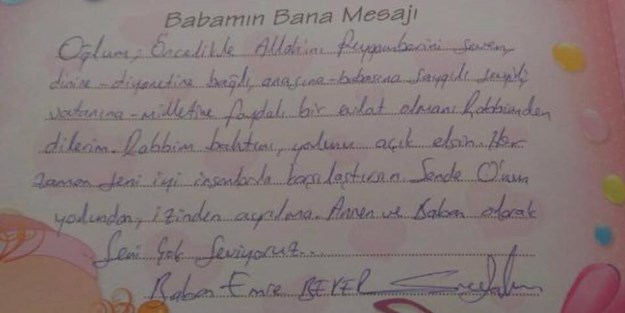 Babamın Bana Mesajı
Oğlum; Öncelikle Allahını Peygamberini seven,
dinine-diyanetine bağlı, anasına-babasına saygılı sevgili,
vatanına-milletine faydalı bir evlat olmanı Rabbimden
dilerim. Rabbim bahtını, yolunu açık etsin. Her
zaman seni iyi insanlarla karşılaştırsın. Sende O'nun
yolundan, izinden ayrılma. Annen ve Baban olarak
Seni Çok Seviyoruz...
Baban Emre